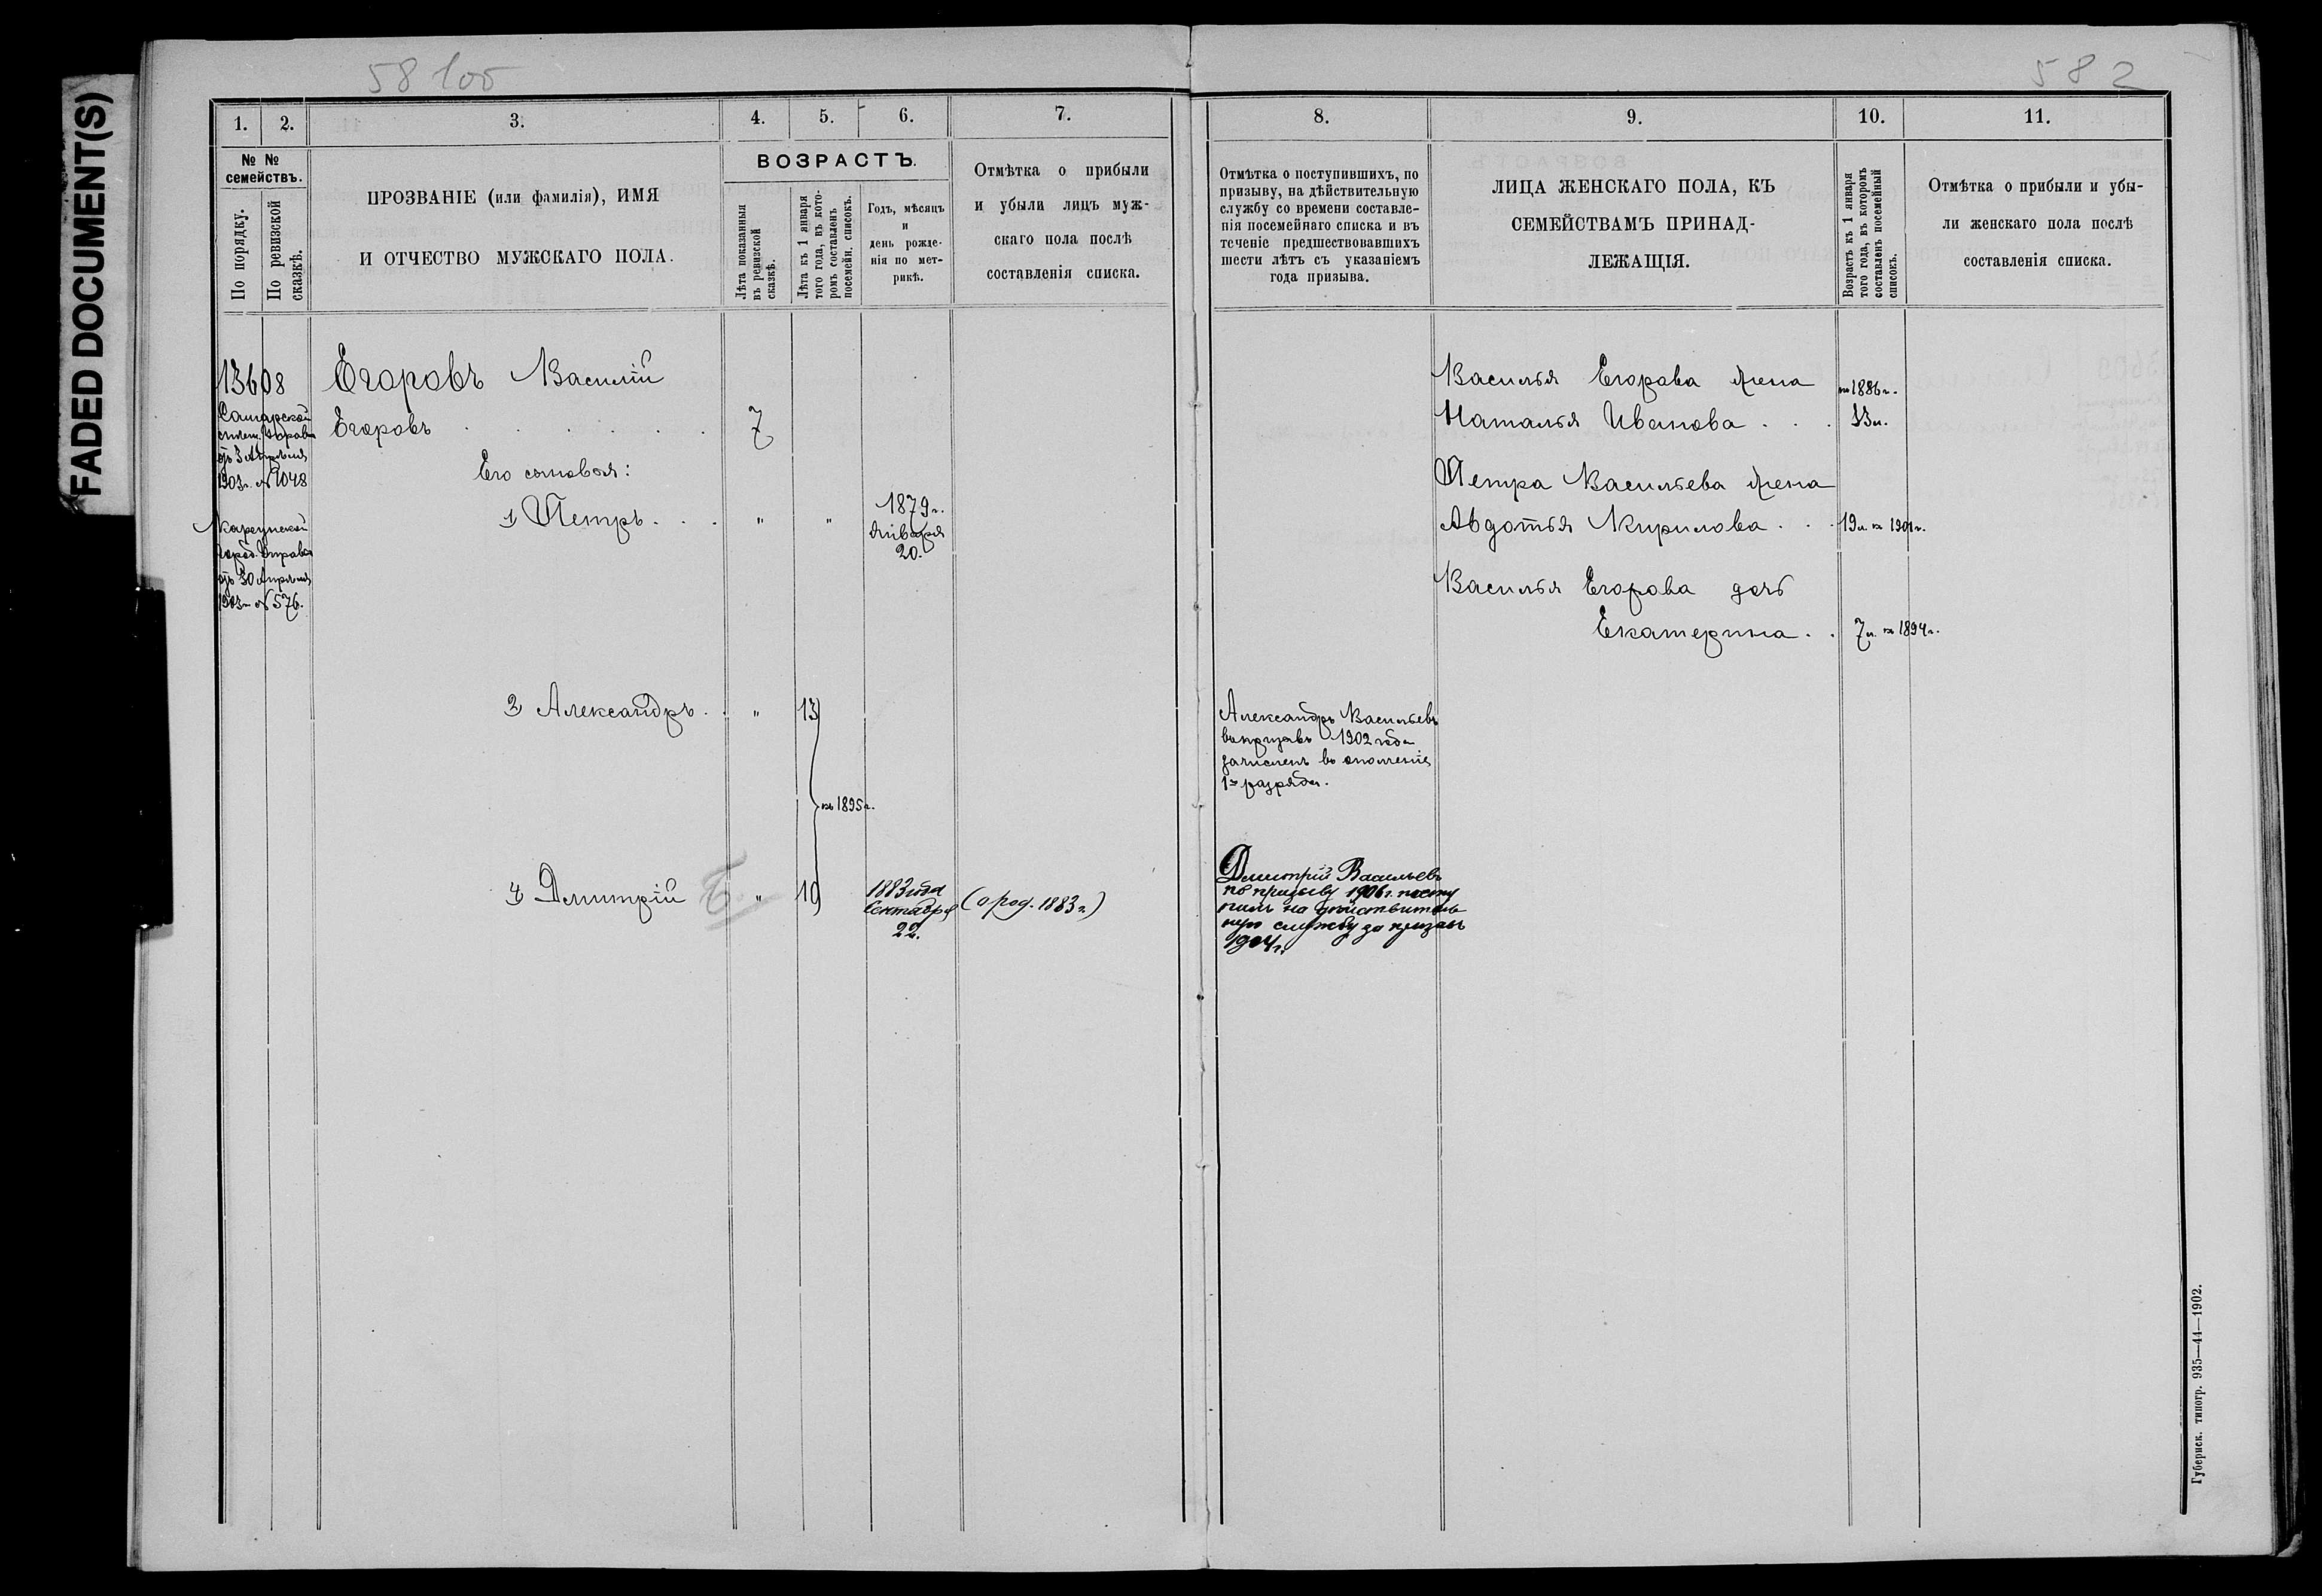 FADED DOCUMENT(S)
58 100
582
1. 2. 3. 4. 5. 6. 7.
№ № семействъ.
По порядку.
По ревизской сказкѣ.
ПРОЗВАНІЕ (или фамилія), ИМЯ
И ОТЧЕСТВО МУЖСКАГО ПОЛА.
ВОЗРАСТЪ.
Лѣта показанныя
въ ревизской
сказкѣ.
Лѣта къ 1 января
того года, въ кото-
ромъ составленъ
посемейн. списокъ.
Годъ, мѣсяцъ
и
день рожде-
нія по мет-
рикѣ.
Отмѣтка о прибыли
и убыли лицъ муж-
скаго пола послѣ
составленія списка.
13608
Самарской
Управы
отъ 3 Апрѣля
1903 г. № 1048
Карсунской
Город. Управы
отъ 30 Апрѣля
1903 г. № 576.
Егоровъ Василій
Егоровъ . . . . . . 7
Его сыновья:
1 Петръ . . . " " 1879 г.
Января
20.
2 Александръ . . " 13
къ 1895 г.
3 Дмитрій Б " 10 1883 года (о род. 1883 г.)
Сентября
22.
8. 9. 10. 11.
Отмѣтка о поступившихъ, по
призыву, на дѣйствительную
службу со времени составле-
нія посемейнаго списка и въ
теченіе предшествовавшихъ
шести лѣтъ съ указаніемъ
года призыва.
ЛИЦА ЖЕНСКАГО ПОЛА, КЪ
СЕМЕЙСТВАМЪ ПРИНАД-
ЛЕЖАЩІЯ.
Возрастъ къ 1 января
того года, въ которомъ
составленъ посемейный
списокъ.
Отмѣтка о прибыли и убы-
ли женскаго пола послѣ
составленія списка.
Василья Егорова жена къ 1886 г.
Наталья Иванова . . . 33 л.
Петра Васильева жена
Авдотья Кирилова . . . 19 л. къ 1901 г.
Василья Егорова дочь
Екатерина . . 7 л. къ 1894 г.
Александръ Васильевъ
въ призывъ 1902 года
зачисленъ въ ополченіе
1го разряда.
Дмитрій Васильевъ
по призыву 1906 г. посту
пилъ на дѣйствитель
ную службу за призывъ
1904 г.
Губернск. типогр. 935—44—1902.